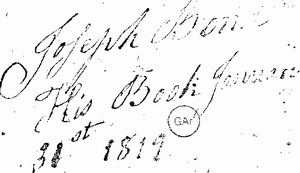 Joseph Bon
His Book January
31st 1819
GAr